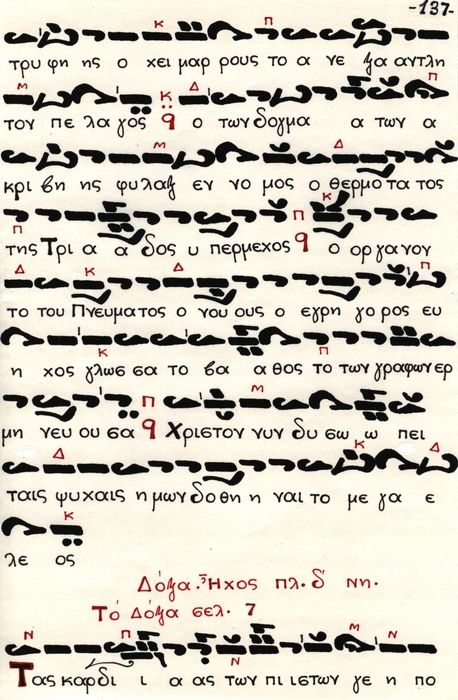 -137-
Κ Π
τρυ φη ης ο χει μαρ ρους το α νε ξα αντλη
Μ Κ Δ Π
τον πε λα γος q ο των δογμα α των α
Μ Δ
κρι βη ης φυλαξ εν νο μος ο θερμο τα τος
Π Κ
της Τρι α α δος υ περμεχος q ο οργανον
Δ Κ Δ Π
το του Πνευματος ο νου ους ο εγρη γο ρος ευ
Κ Π
η χος γλωσ σα το βα α θος το των γραφων ερ
Π Μ
μη νευ ου σα q Χριστον νυν δυ σω ω πει
Δ Κ Δ
ταις ψυχαις η μων δο θη η ναι το με γα ε
Κ
λε ος
Δόξα. Ἦχος πλ. δ΄ νη.
Τό Δόξα σελ. 7
Ν Π Ν Μ Ν
Τας καρδι ι α ας των πι ιστων γε η πο